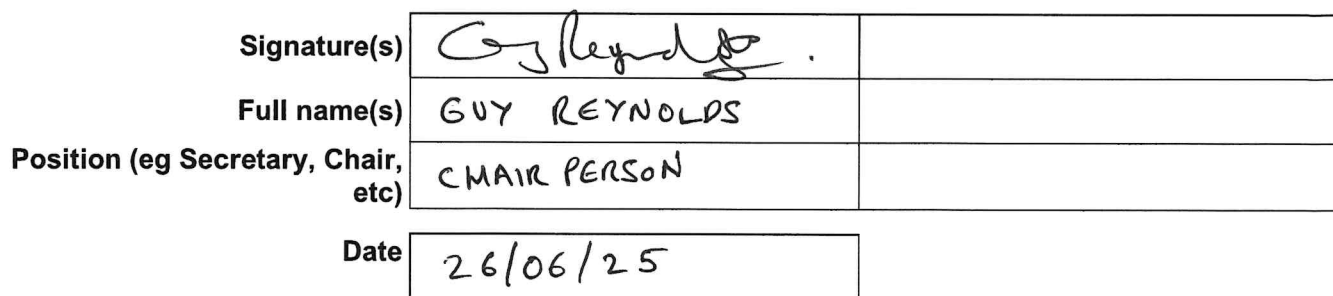 Signature(s) Guy Reynolds.
Full name(s) GUY REYNOLDS
Position (eg Secretary, Chair,
etc) CHAIR PERSON
Date 26/06/25